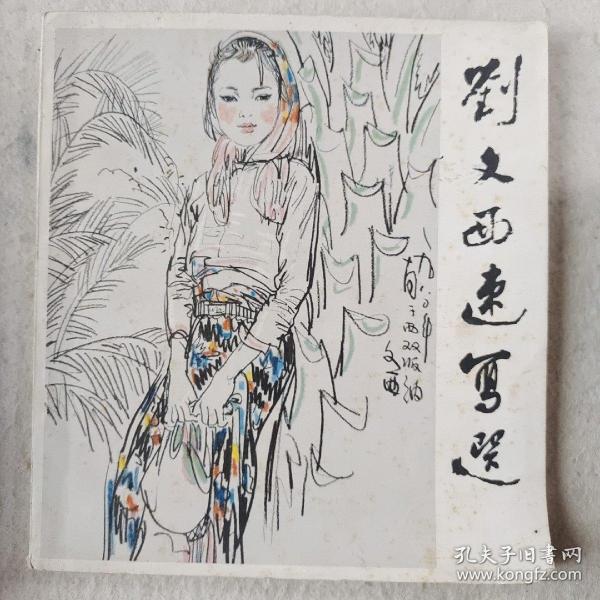 劉文西速寫選
一九八〇年
葯于西双版纳
文西
孔夫子旧書网
www.kongfz.com